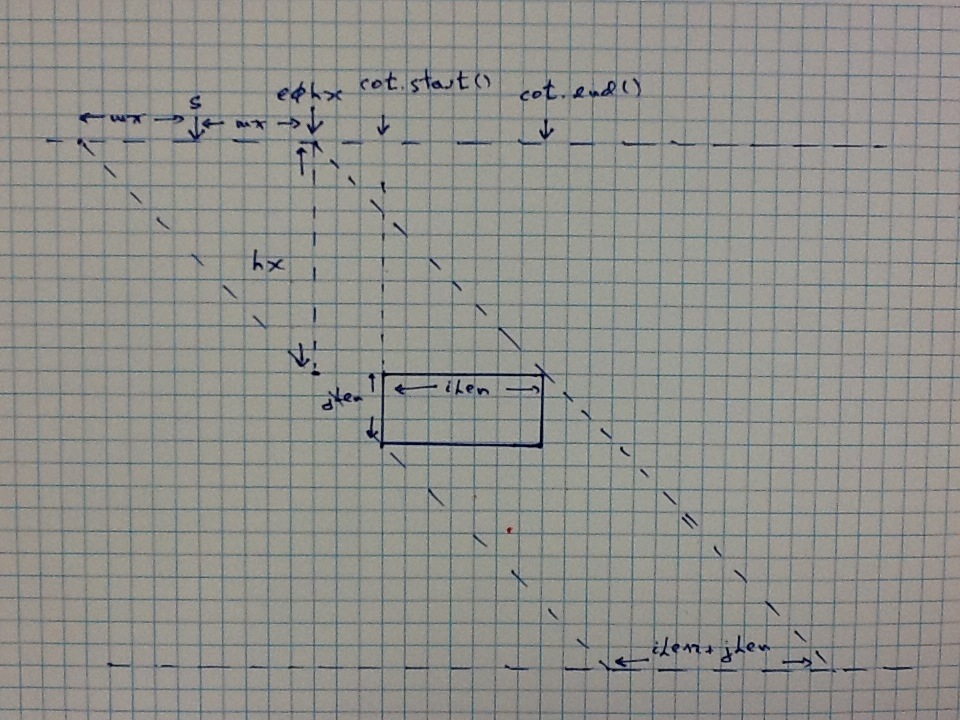 mx
s
mx
eφhx
cot.start()
cot.end()
hx
jLen
iLen
iLen + jLen